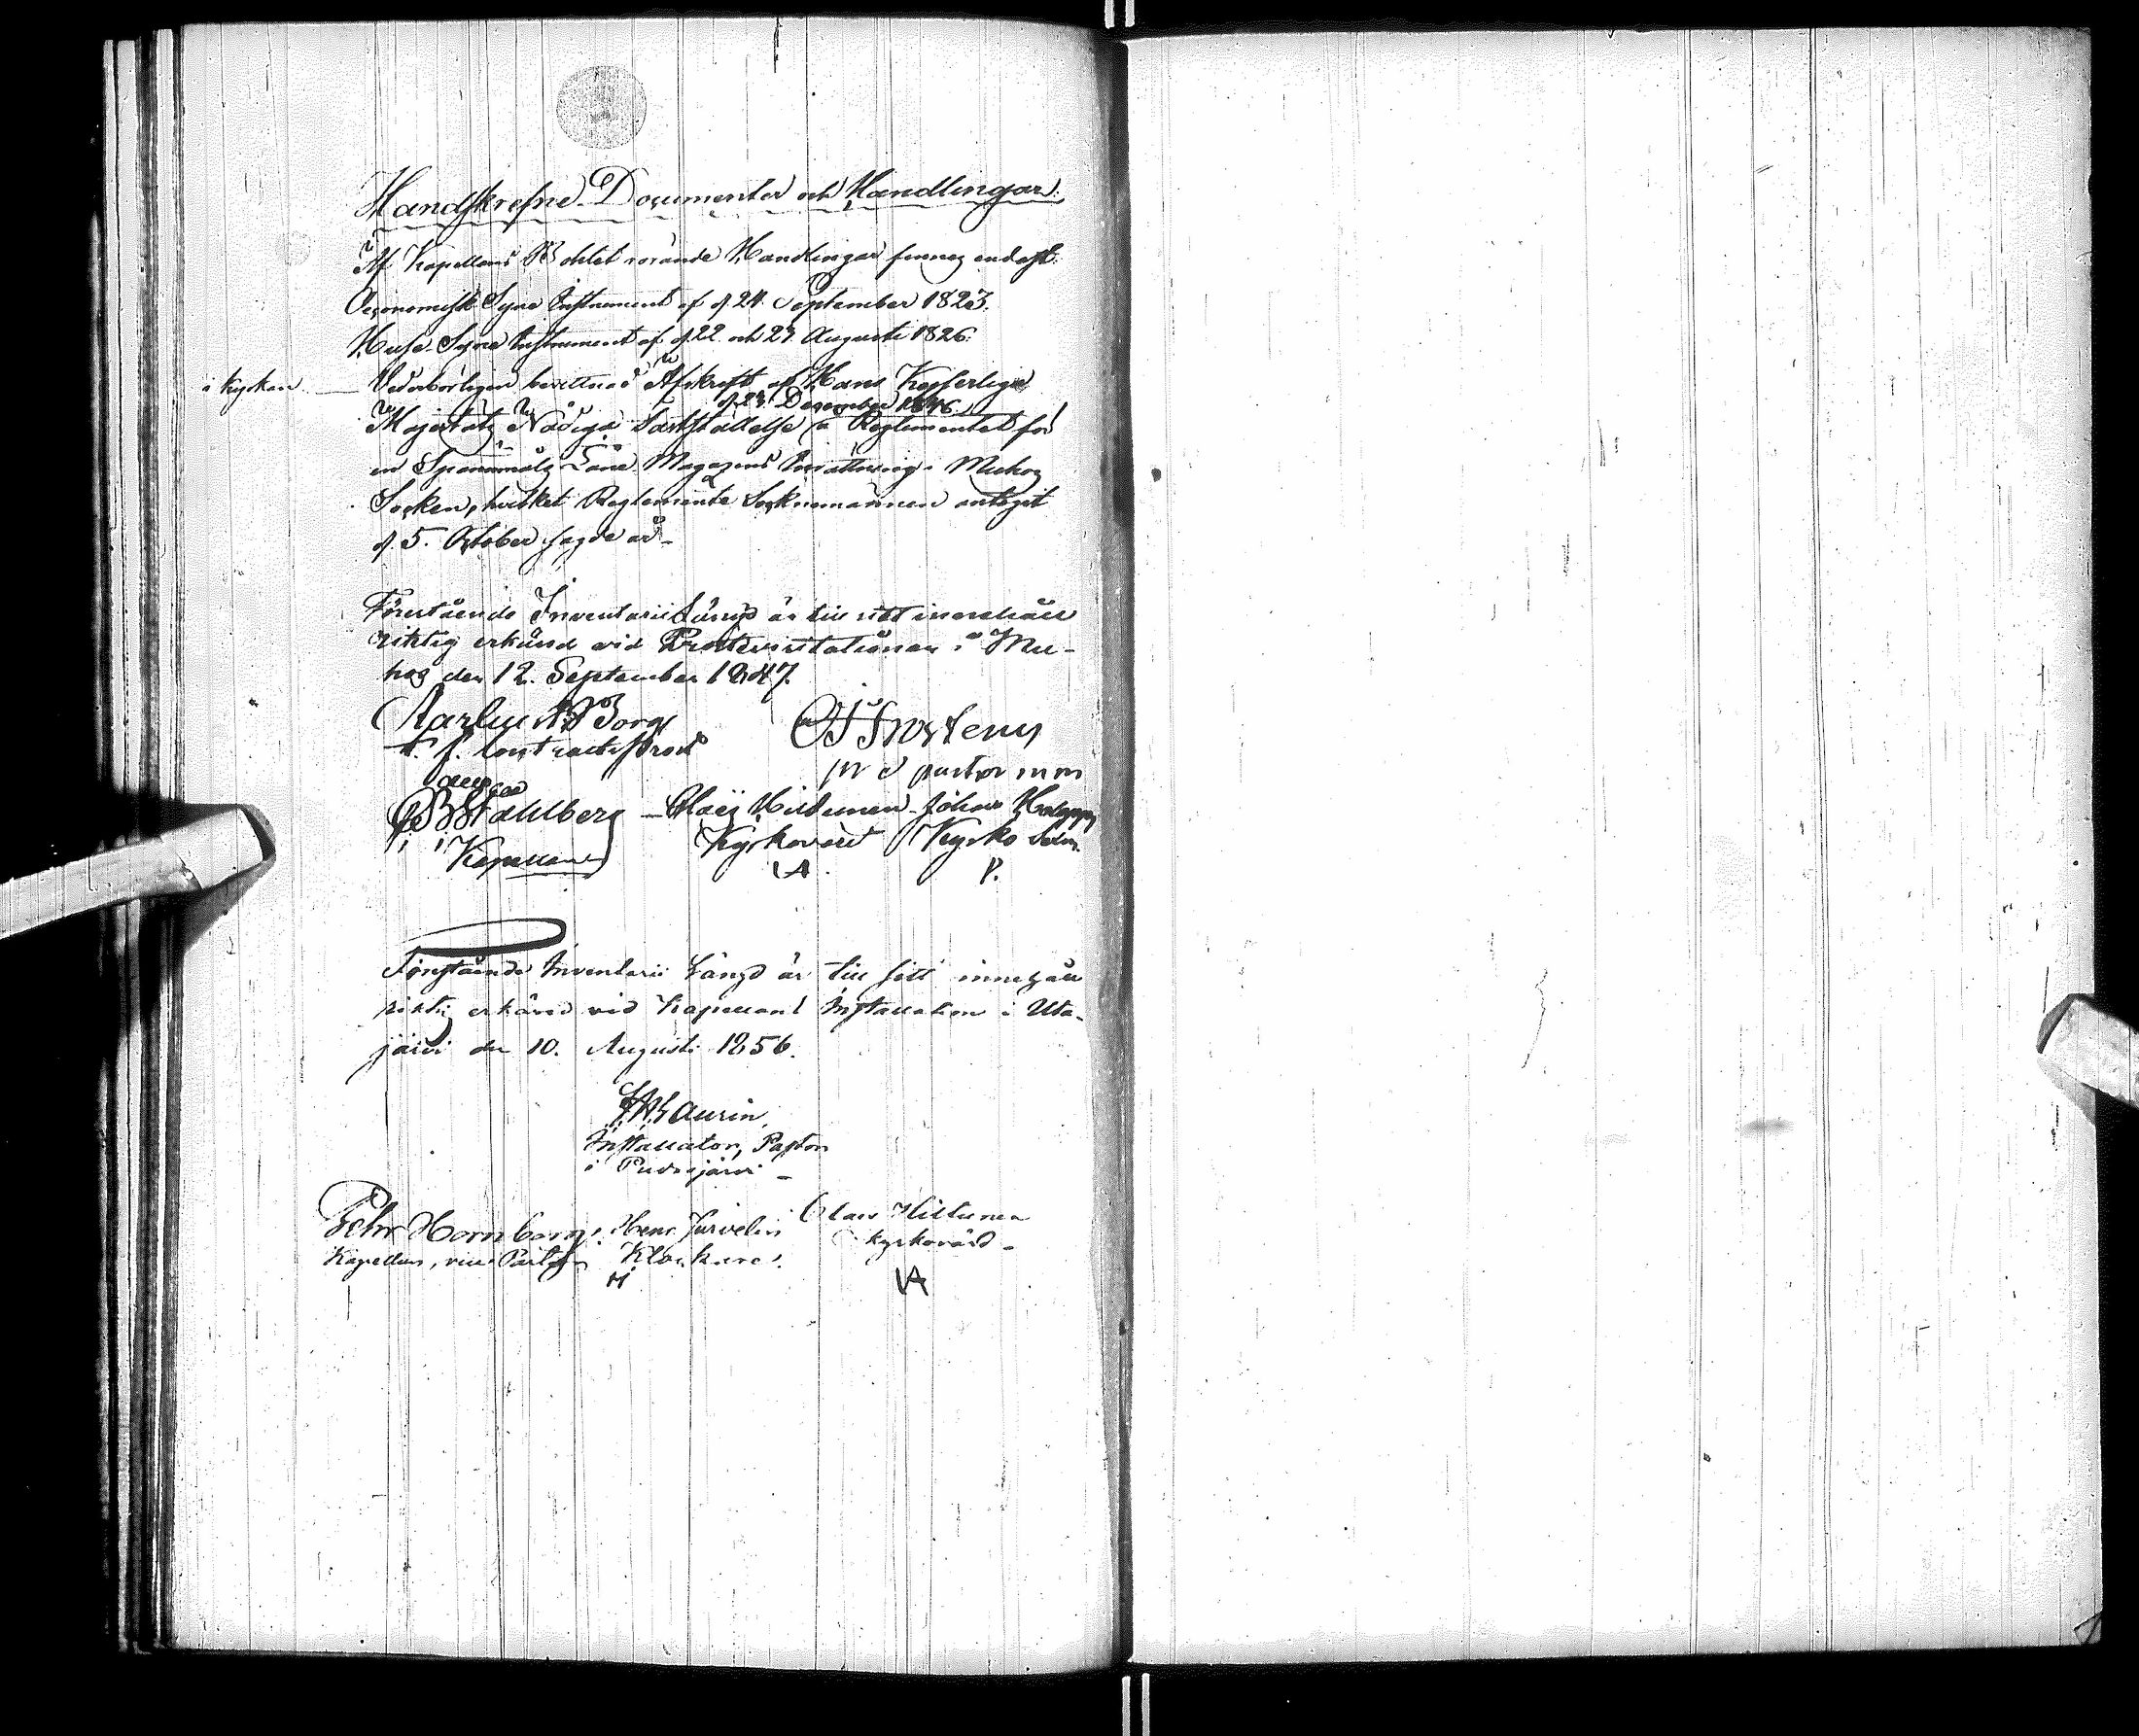 Handskrefne Documenter och Handlingar.
Af Kapellans Bohlet rörande Handlingar finnes endast:
Oeconomisk Syne Instrument af d 24. September 1823.
Huse-Syne Instrument af d. 22. och 23 Augusti 1826.
i kyrkan
Vederbörligen bevittnad Afskrift af Hans Kejserliga
d. 23. December 1846
Majestäts Nådiga Fastställelse å Reglementet för
en Spannmåls Låne Magazins Inrättning i Muhos
Socken, hvilket Reglemente Socknemännen antagit
d. 5. October sagde år.
Förestående Inventarii Längd är till sitt innehåll
riktig erkänd vid Prostevisitationen i Mu-
hos den 12. September 1847.
Karl Borg
t. f. Contractsprost
Frosterus
Pastor
Ståhlberg
Kapellan
Claës Hiltunen
Kyrkovärd
Johan
Kyrko
P.
Förestående Inventarii Längd är till sitt innehåll
riktig erkänd vid Kapellans Installation i Uta-
järvi den 10. Augusti 1856.
Laurin,
Installator, Pastor
i Pudasjärvi
Pehr Hornborg.
Kapellan, vice Pastor
Henr Jurvelin
Klockare.
Claes Hiltunen
kyrkovärd